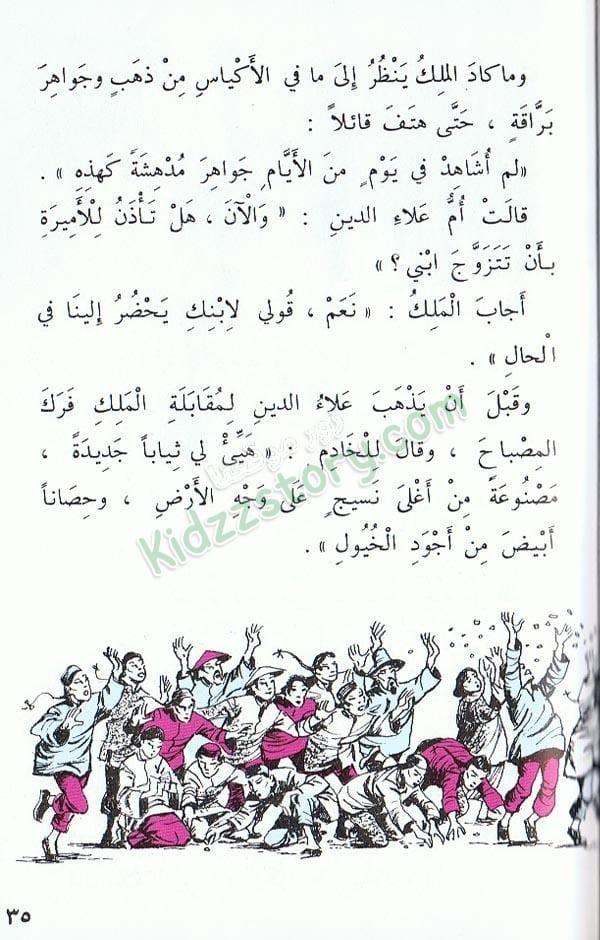 وما كادَ الملِكُ يَنْظُرُ إلىَ ما في الأَكْياسِ مِنْ ذهَبٍ وجَواهِرَ
بَرَّاقَةٍ ، حَتَّى هتَفَ قائلاً :
«لم أُشَاهِدْ في يَوْمٍ منَ الأيَّامِ جَواهِرَ مُدْهِشَةً كَهذِهِ» .
قالَتْ أُمُّ عَلاءِ الدينِ : «وَالْآنَ ، هَلْ تَأْذَنُ لِلْأَمِيرَةِ
بـأَنْ تَتَزَوَّجَ ابْني ؟»
أَجابَ الْمَلِكُ : «نَعَمْ ، قُولي لاِبْنِكِ يَحْضُرُ إلينَا في
الْحالِ» .
وقَبْلَ أَنْ يَذْهَبَ عَلاءُ الدينِ لِمُقَابَلَةِ الْمَلِكِ فَرَكَ
المِصْباحَ ، وقالَ لِلْخَادِمِ : «هَيِّئْ لي ثِياباً جَديدَةً ،
مَصْنُوعَةً مِنْ أَغْلَى نَسيجٍ عَلَى وَجْهِ الأَرْضِ ، وحِصَاناً
أَبْيضَ مِنْ أَجْوَدِ الْخُيُولِ» .
Kidzzstory.com
٣٥